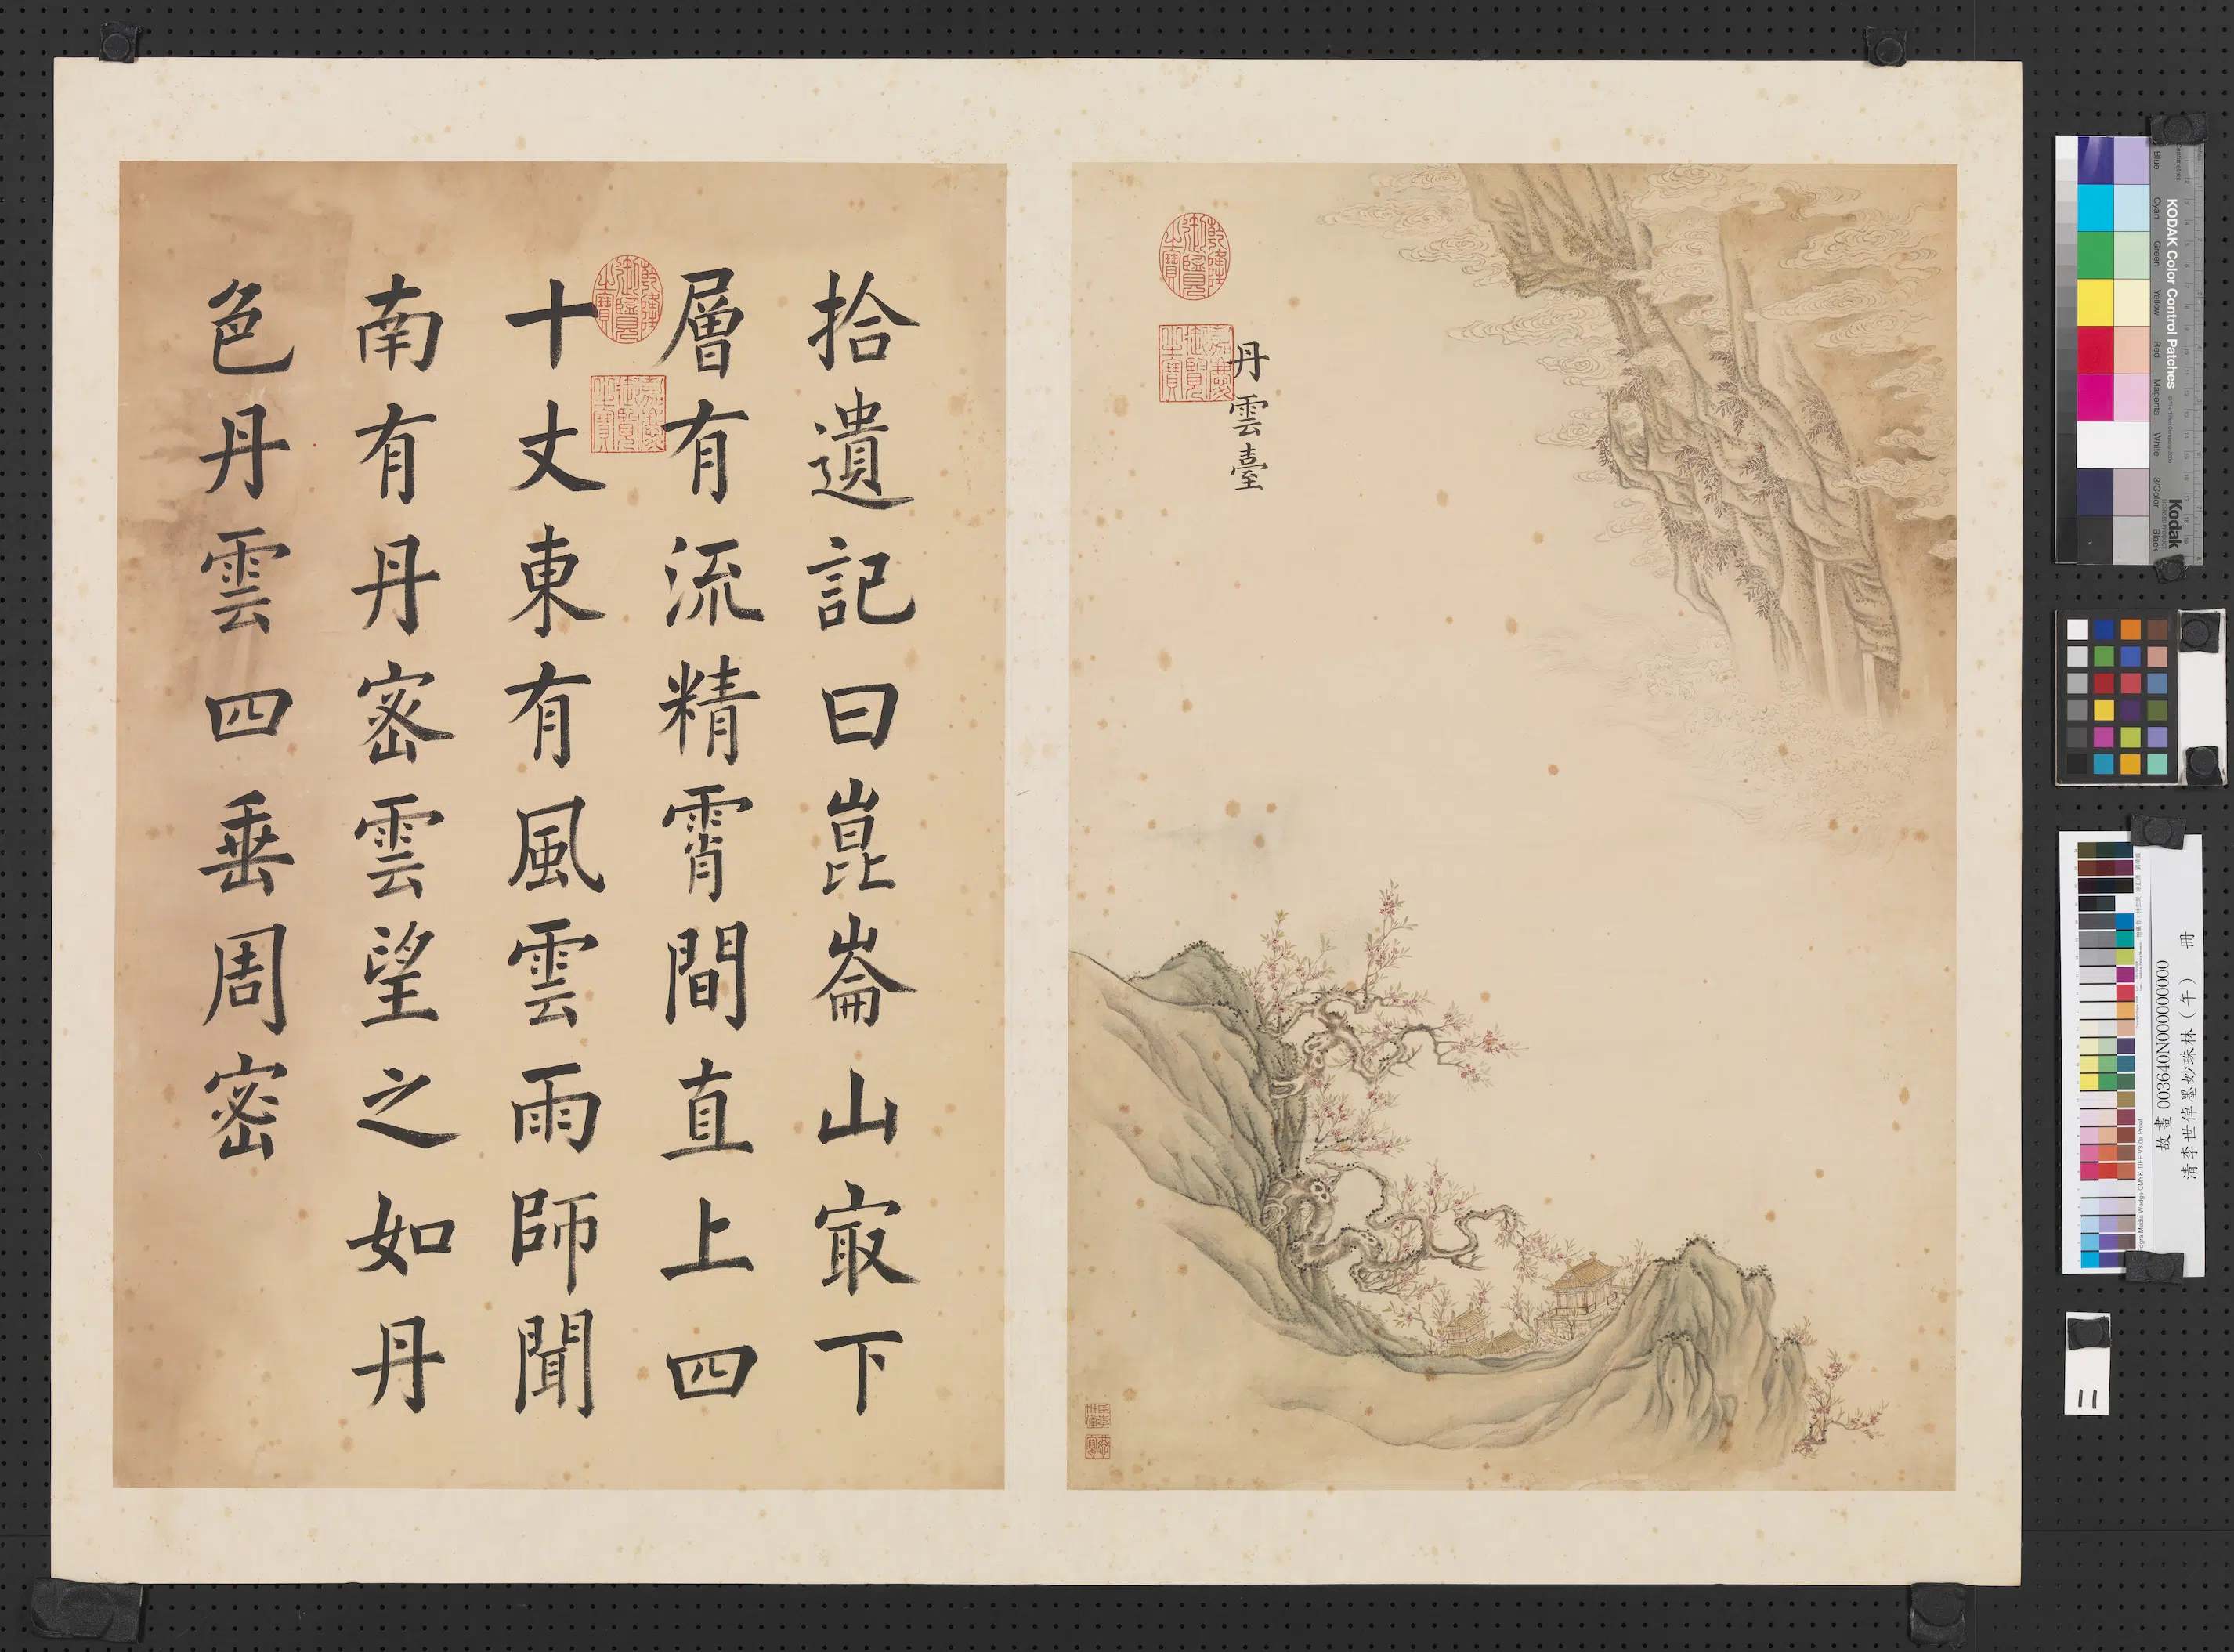 拾遺記曰崑崙山㝡下
層有流精霄間直上四
十丈東有風雲雨師闕
南有丹密雲望之如丹
色丹雲四垂周密
丹雲臺
乾隆御覽之寶
嘉慶御覽之寶
乾隆鑑賞
KODAK Color Control Patches
Kodak
Blue
Cyan
Green
Yellow
Red
Magenta
White
3/Color
Black
故畫 003640N000000000
清李世倬墨妙珠林（午） 冊